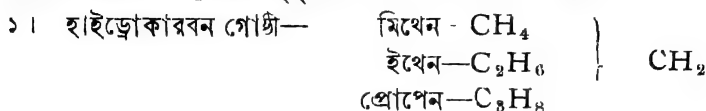 ১। হাইড্রোকারবন গোষ্ঠী— মিথেন - CH₄
ইথেন—C₂H₆ } CH₂
প্রোপেন—C₃H₈